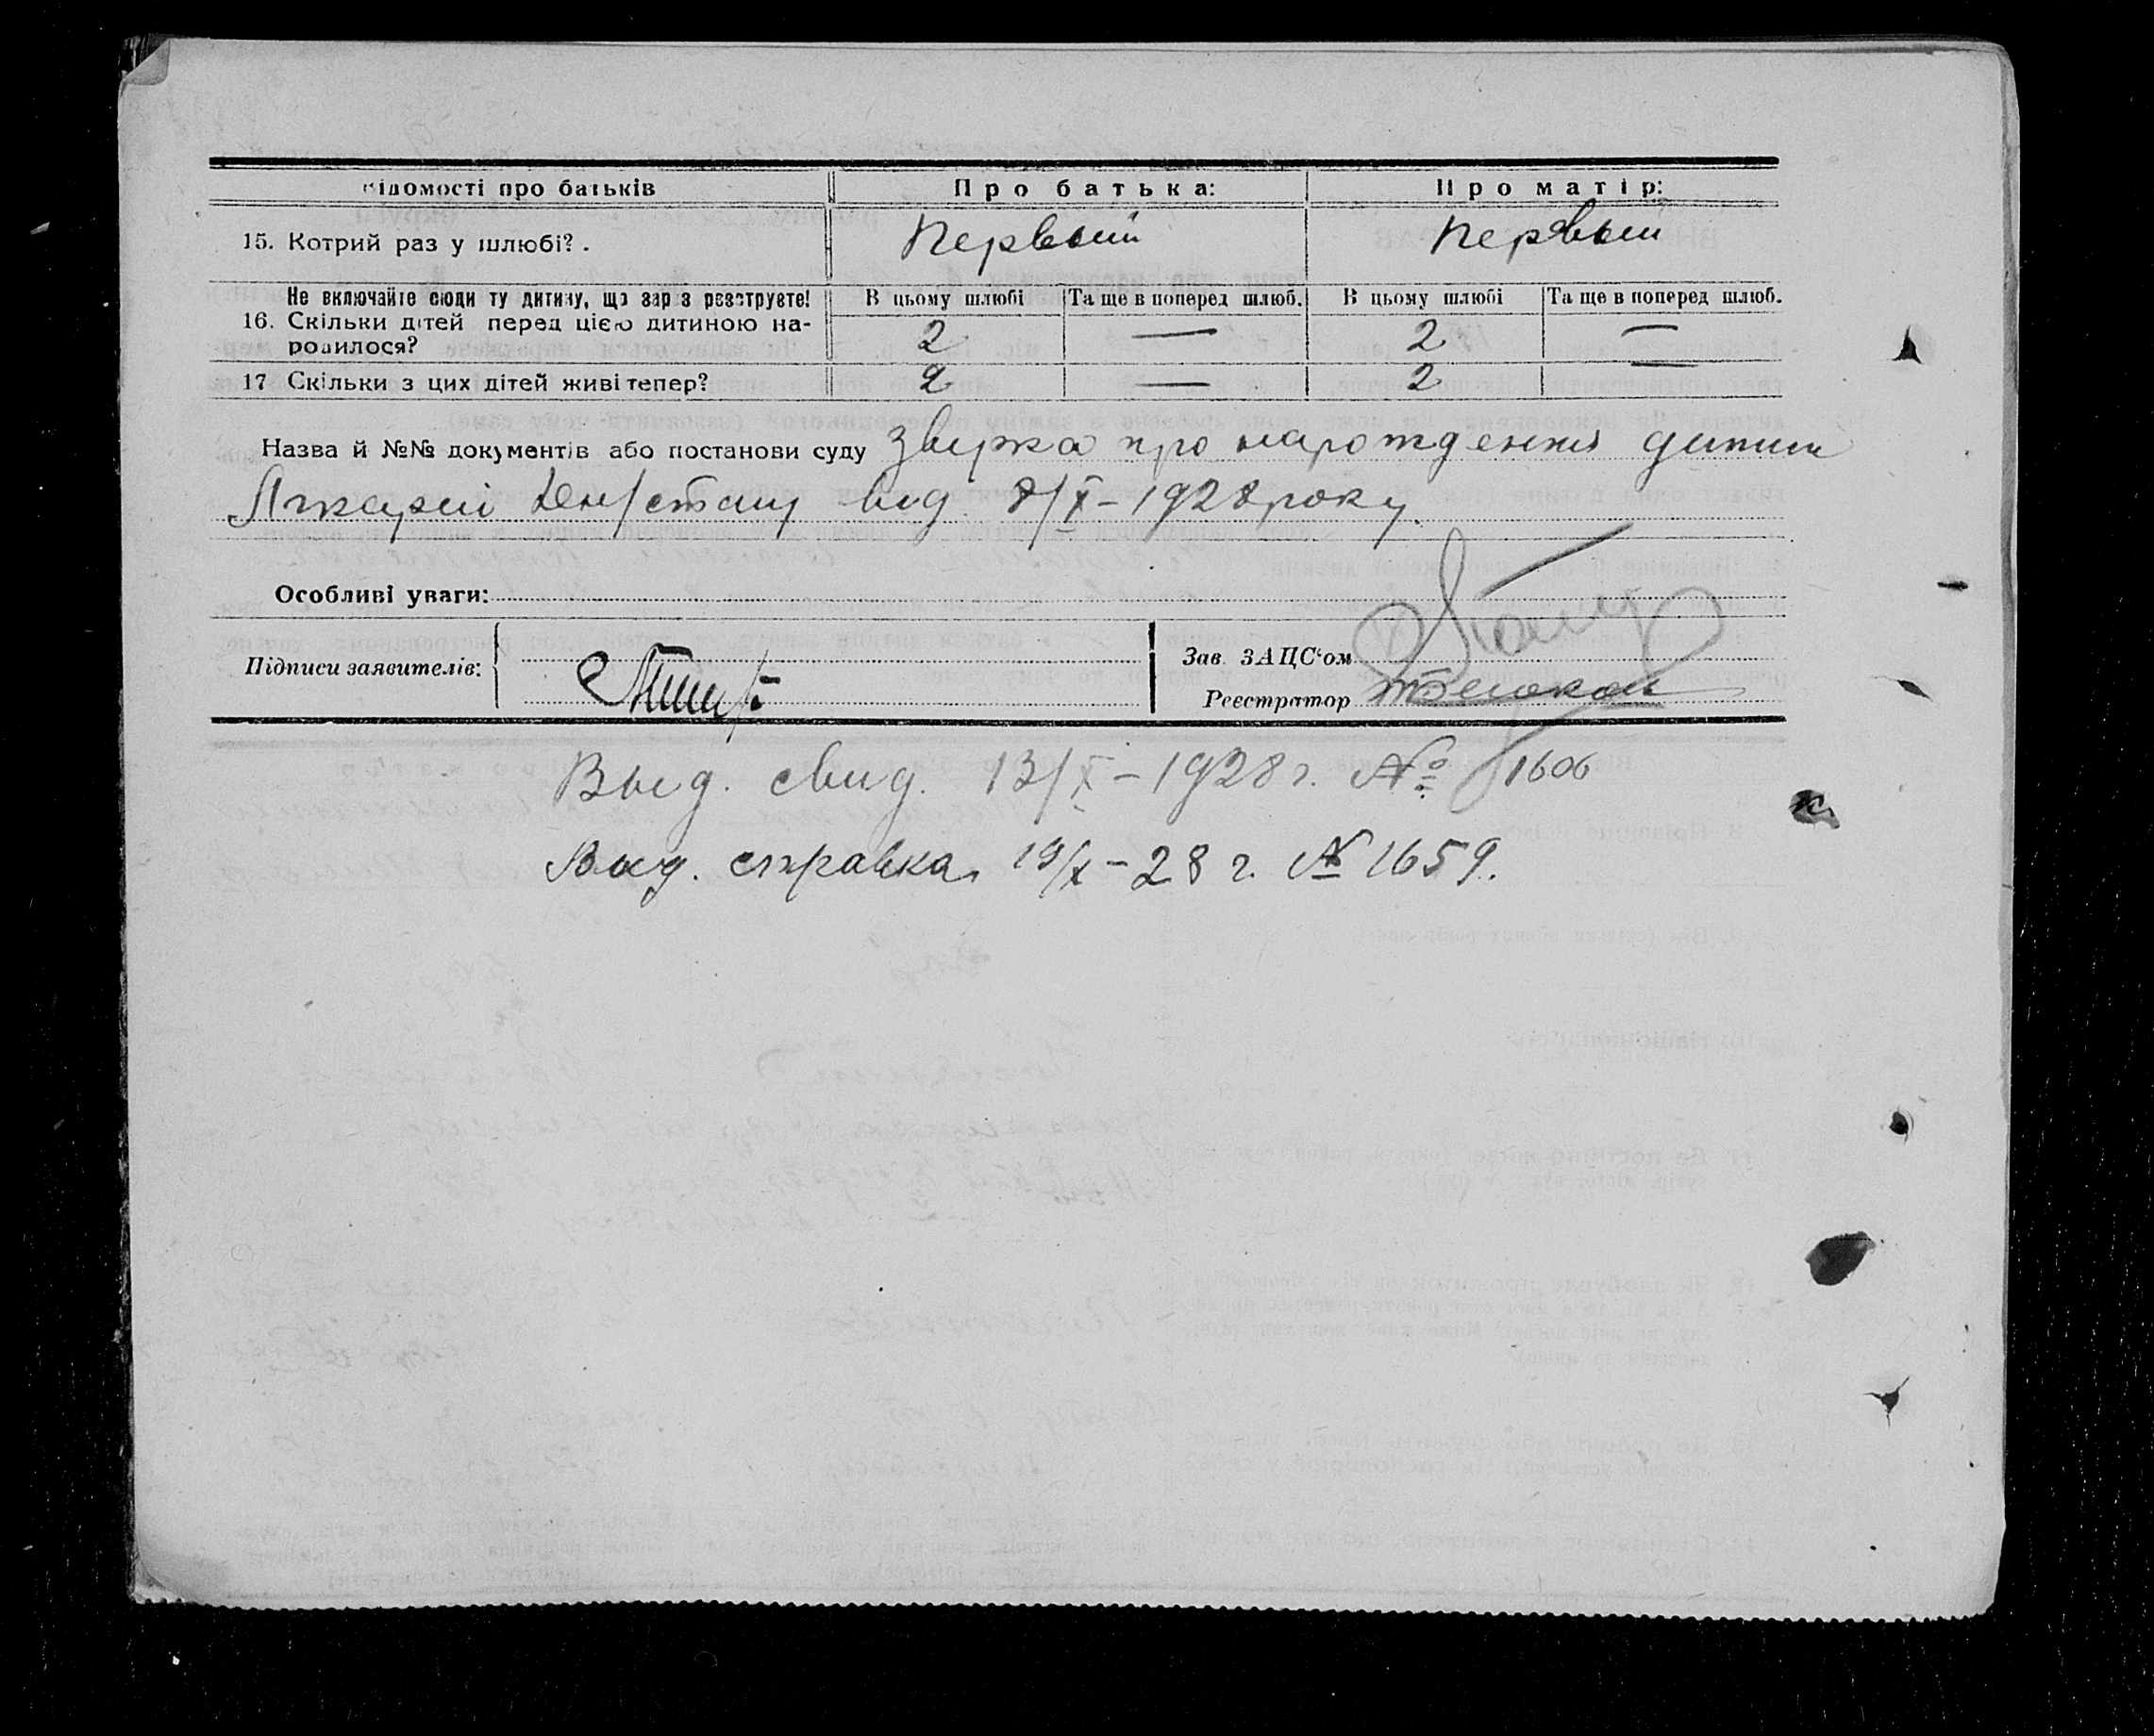 Відомості про батьків Про батька: Про матір:
15. Котрий раз у шлюбі? . Первый Первый
Не включайте сюди ту дитину, що зараз реєструєте! В цьому шлюбі Та ще в поперед шлюб. В цьому шлюбі Та ще в поперед шлюб.
16. Скільки дітей перед цією дитиною на-
родилося? 2 — 2 —
17 Скільки з цих дітей живі тепер? 2 — 2 —
Назва й №№ документів або постанови суду про нарождення дитини
від 8/X – 1928 року.
Особливі уваги:
Підписи заявителів:
Зав. ЗАЦС'ом
Реєстратор
Выд. свид. 13/X – 1928 г. № 1606
Выд. справка 19/X – 28 г. № 1659.